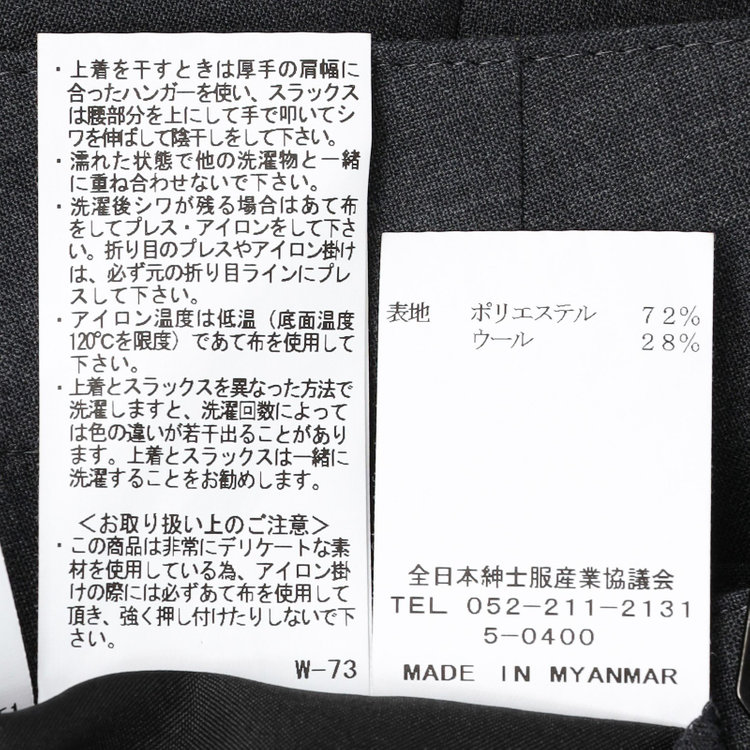 ・上着を干すときは厚手の肩幅に
合ったハンガーを使い、スラックス
は腰部分を上にして手で叩いてシ
ワを伸ばして陰干しをして下さい。
・濡れた状態で他の洗濯物と一緒
に重ね合わせないで下さい。
・洗濯後シワが残る場合はあて布
をしてプレス・アイロンをして下さ
い。折り目のプレスやアイロン掛け
は、必ず元の折り目ラインにプレ
スして下さい。
・アイロン温度は低温（底面温度
120℃を限度）であて布を使用して
下さい。
・上着とスラックスを異なった方法で
洗濯しますと、洗濯回数によって
は色の違いが若干出ることがあり
ます。上着とスラックスは一緒に
洗濯することをお勧めします。
＜お取り扱い上のご注意＞
・この商品は非常にデリケートな素
材を使用している為、アイロン掛
けの際には必ずあて布を使用して
頂き、強く押し付けたりしないで下
さい。
W-73
表地 ポリエステル 72%
ウール 28%
全日本紳士服産業協議会
TEL 052-211-2131
5-0400
MADE IN MYANMAR